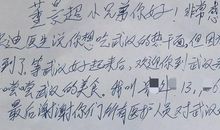 董芸超小兄弟你好！非常感
迪医生说你想吃武汉的热干面，但因
到了，等武汉好起来后，欢迎你到武汉来
尝尝武汉的美食。我叫 13, 6
最后谢谢你们所有医护人员对武汉